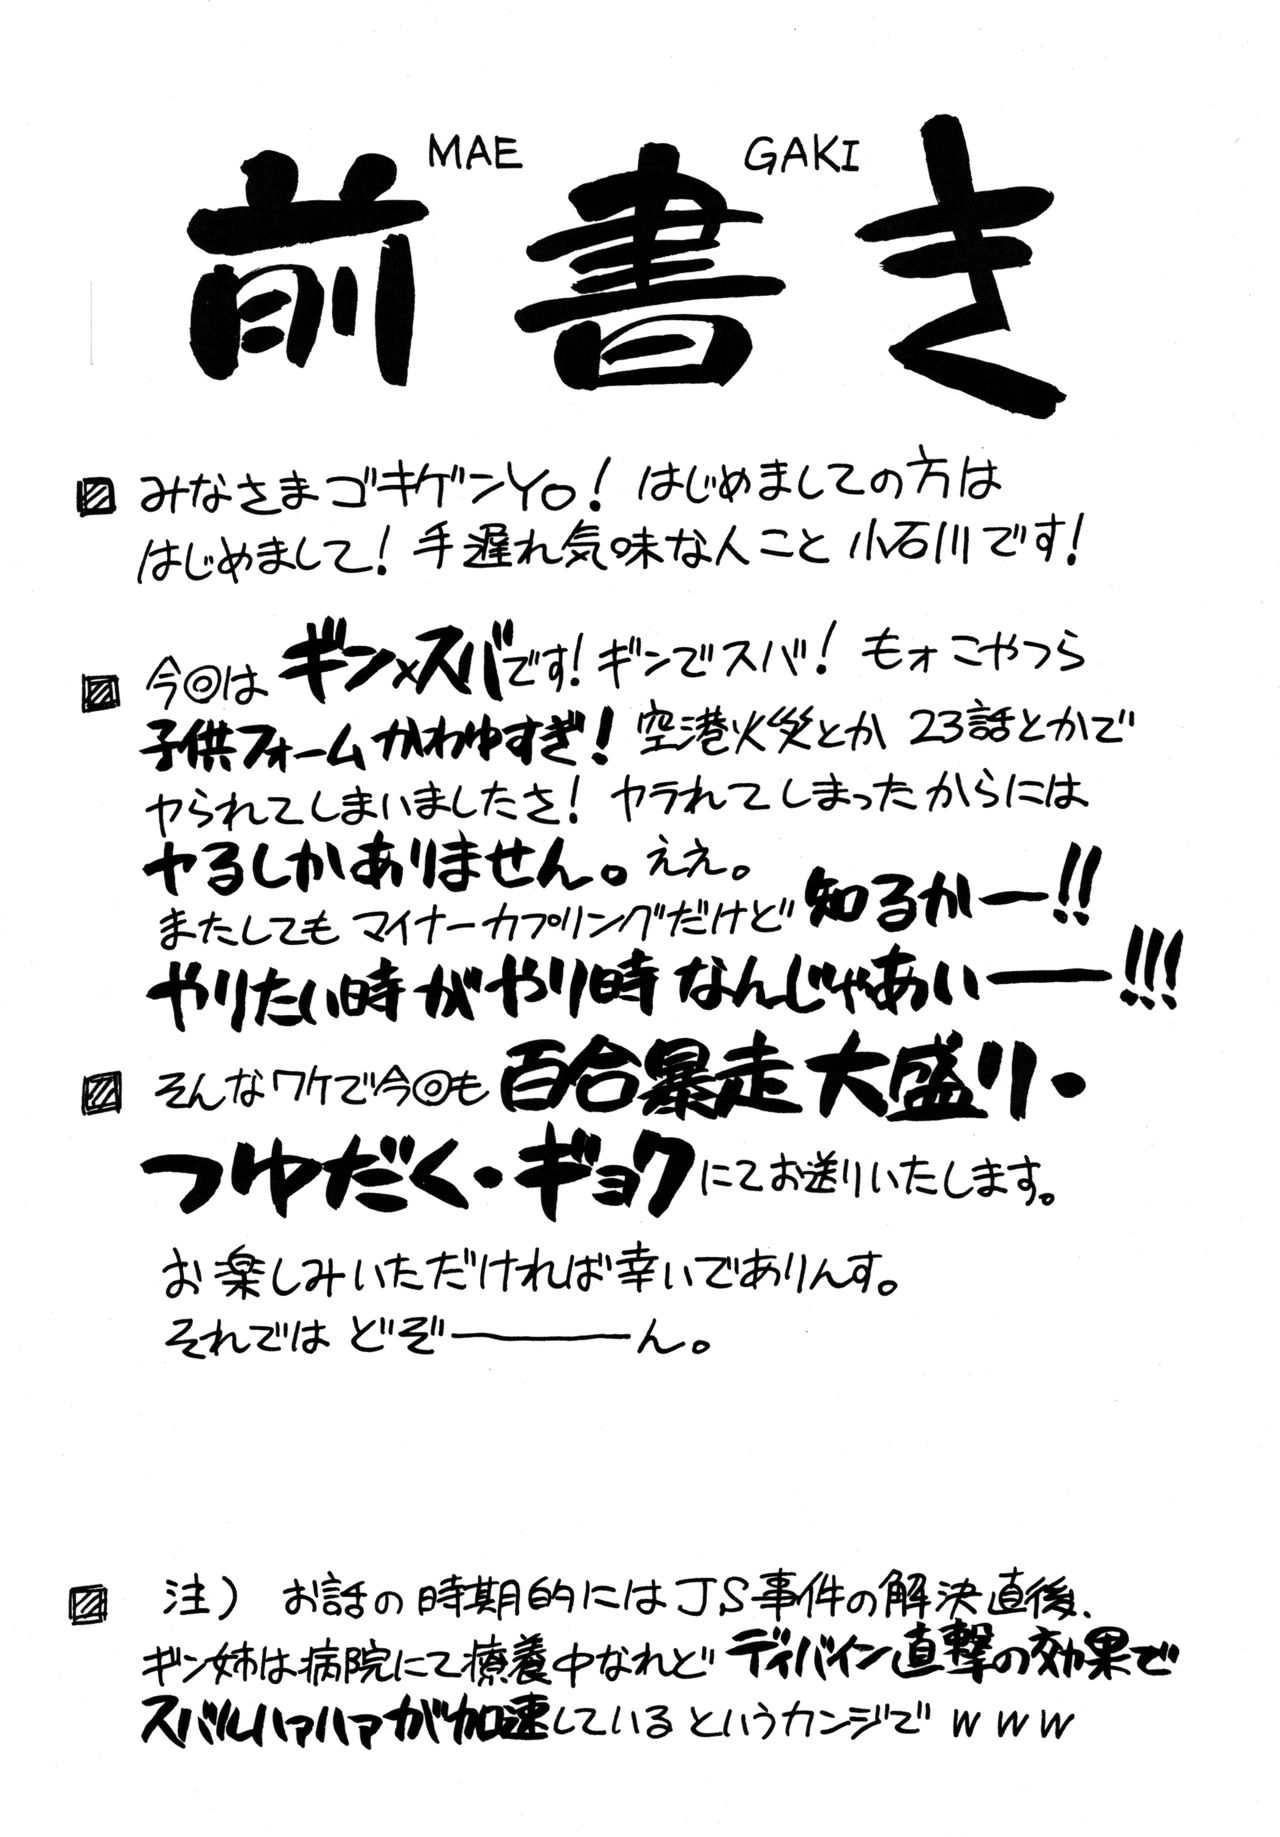 MAE GAKI
前書き
みなさまゴキゲンYo! はじめましての方は
はじめまして! 手遅れ気味な人こと小石川です!
今◎は ギン×スバです! ギンでスバ! もォこやつら
子供フォームかわゆすぎ! 空港火災とか 23話とかで
ヤられてしまいましたさ! ヤラれてしまったからには
ヤるしかありません。ええ。
またしても マイナーカプリングだけど 知るかー!!
やりたい時がやり時なんじゃあいー!!!
そんなワケで今◎も 百合暴走大盛り・
つゆだく・ギョクにてお送りいたします。
お楽しみいただければ幸いでありんす。
それでは どぞーん。
注) お話の時期的にはJS事件の解決直後、
ギン姉は病院にて療養中なれど ディバイン直撃の効果で
スバルハァハァが加速しているというカンジで www